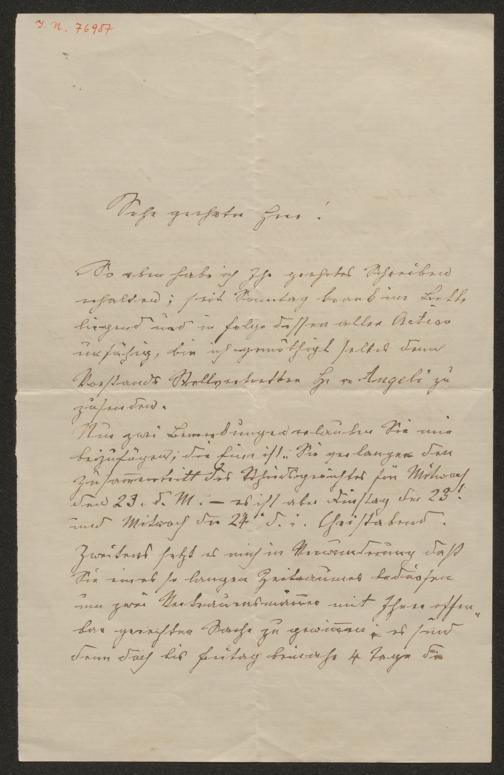 I. N. 76987
Sehr geehrter Herr!
So eben habe ich Ihr geehrtes Schreiben
erhalten; seit Sonntag krank im Bette
liegend und in Folge dessen aller Action
unfähig, bin ich genöthigt selbes dem
Vorstands Stellvertretter H. v. Angeli zu
zusenden.
Nur zwei Bemerkungen erlauben Sie mir
beizufügen; die Eine ist: Sie verlangen den
Zusammentritt des Schiedsgerichtes für Mitwoch
den 23. d. M. – es ist aber Dinstag der 23t.
und Mitwoch der 24t. d. i. Christabend.
Zweitens setzt es mich in Verwunderung daß
Sie eines so langen Zeitraumes bedürfen
um zwei Vertrauensmänner mit Ihrer offen„
bar gerechten Sache zu gewinnen; es sind
denn doch bis Freitag beinahe 4 Tage die